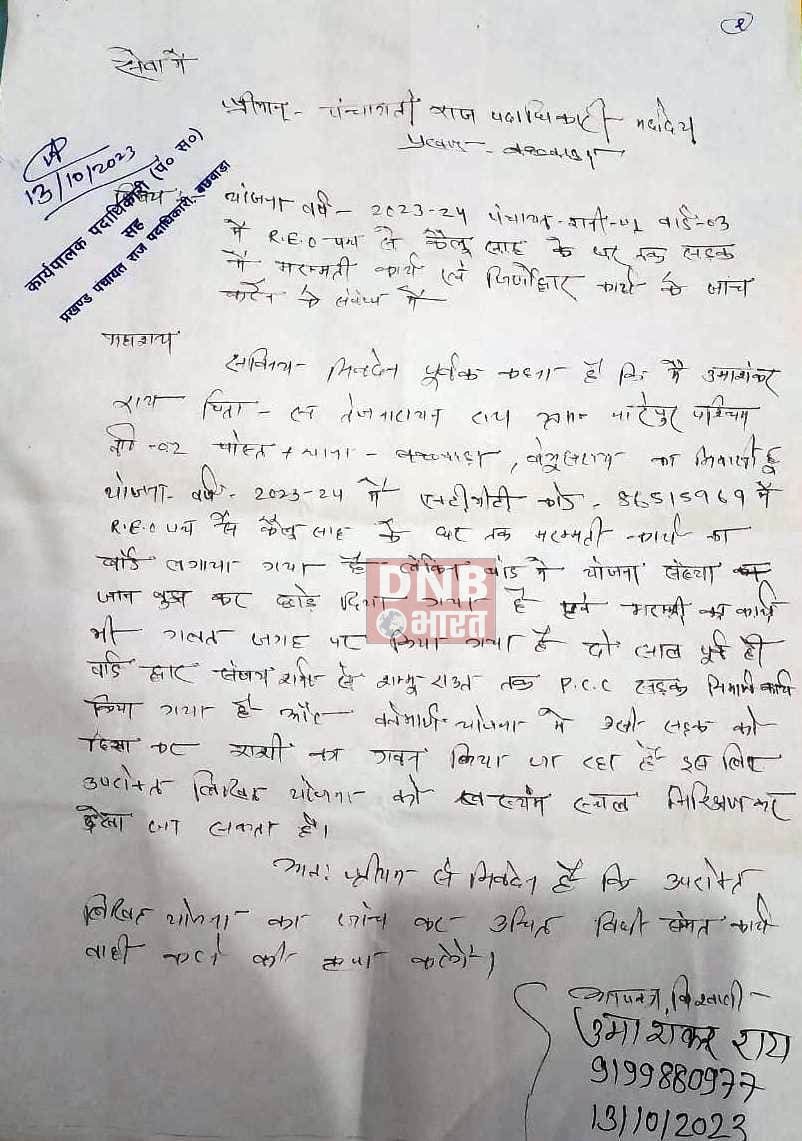 १
सेवा में
श्रीमान- पंचायती राज पदाधिकारी महोदय
प्रखण्ड- बछवाड़ा
13/10/2023
कार्यपालक पदाधिकारी (पं० स०)
सह
प्रखण्ड पंचायत राज पदाधिकारी, बछवाड़ा
विषय योजना वर्ष- 2023-24 पंचायत- रानी-01 वार्ड-03
में R.E.O पथ से कैलू साह के घर तक सड़क
में मरम्मती कार्य एवं जिर्णोद्धार कार्य के जांच
करने के संबंध में
महाशय
सविनय- निवेदन पूर्वक कहना है कि मैं उमाशंकर
राय पिता- स्व तेजनारायण राय पश्चिम
वार्ड-02 पोस्ट + थाना- बछवाड़ा, बेगूसराय का निवासी हूँ
योजना- वर्ष- 2023-24 में एलटीजीटी कोड- 86515969 में
R.E.O पथ से कैलू साह के घर तक मरम्मती कार्य का
बोर्ड लगाया गया है लेकिन बोर्ड में योजना संख्या
जान बुझ कर छोड़ दिया गया है एवं मरम्मती का कार्य
भी गलत जगह पर किया गया है दो साल पूर्व ही
वार्ड द्वारा संजय शर्मा से शम्भु राउत तक P.C.C सड़क निर्माण कार्य
किया गया है और वर्तमान योजना में उसी सड़क को
दिखा कर राशी का गवन किया जा रहा है इस लिए
उपरोक्त लिखित योजना को स्वयंम स्थल निरिक्षण कर
देखा जा सकता है।
अतः श्रीमान से निवेदन है कि उपरोक्त
लिखित योजना का जांच कर उचित विधी समत कार्य
वाही करने की कृपा करेंगे।
DNB
भारत
आपका विश्वासी-
उमाशंकर राय
9199880977
13/10/2023